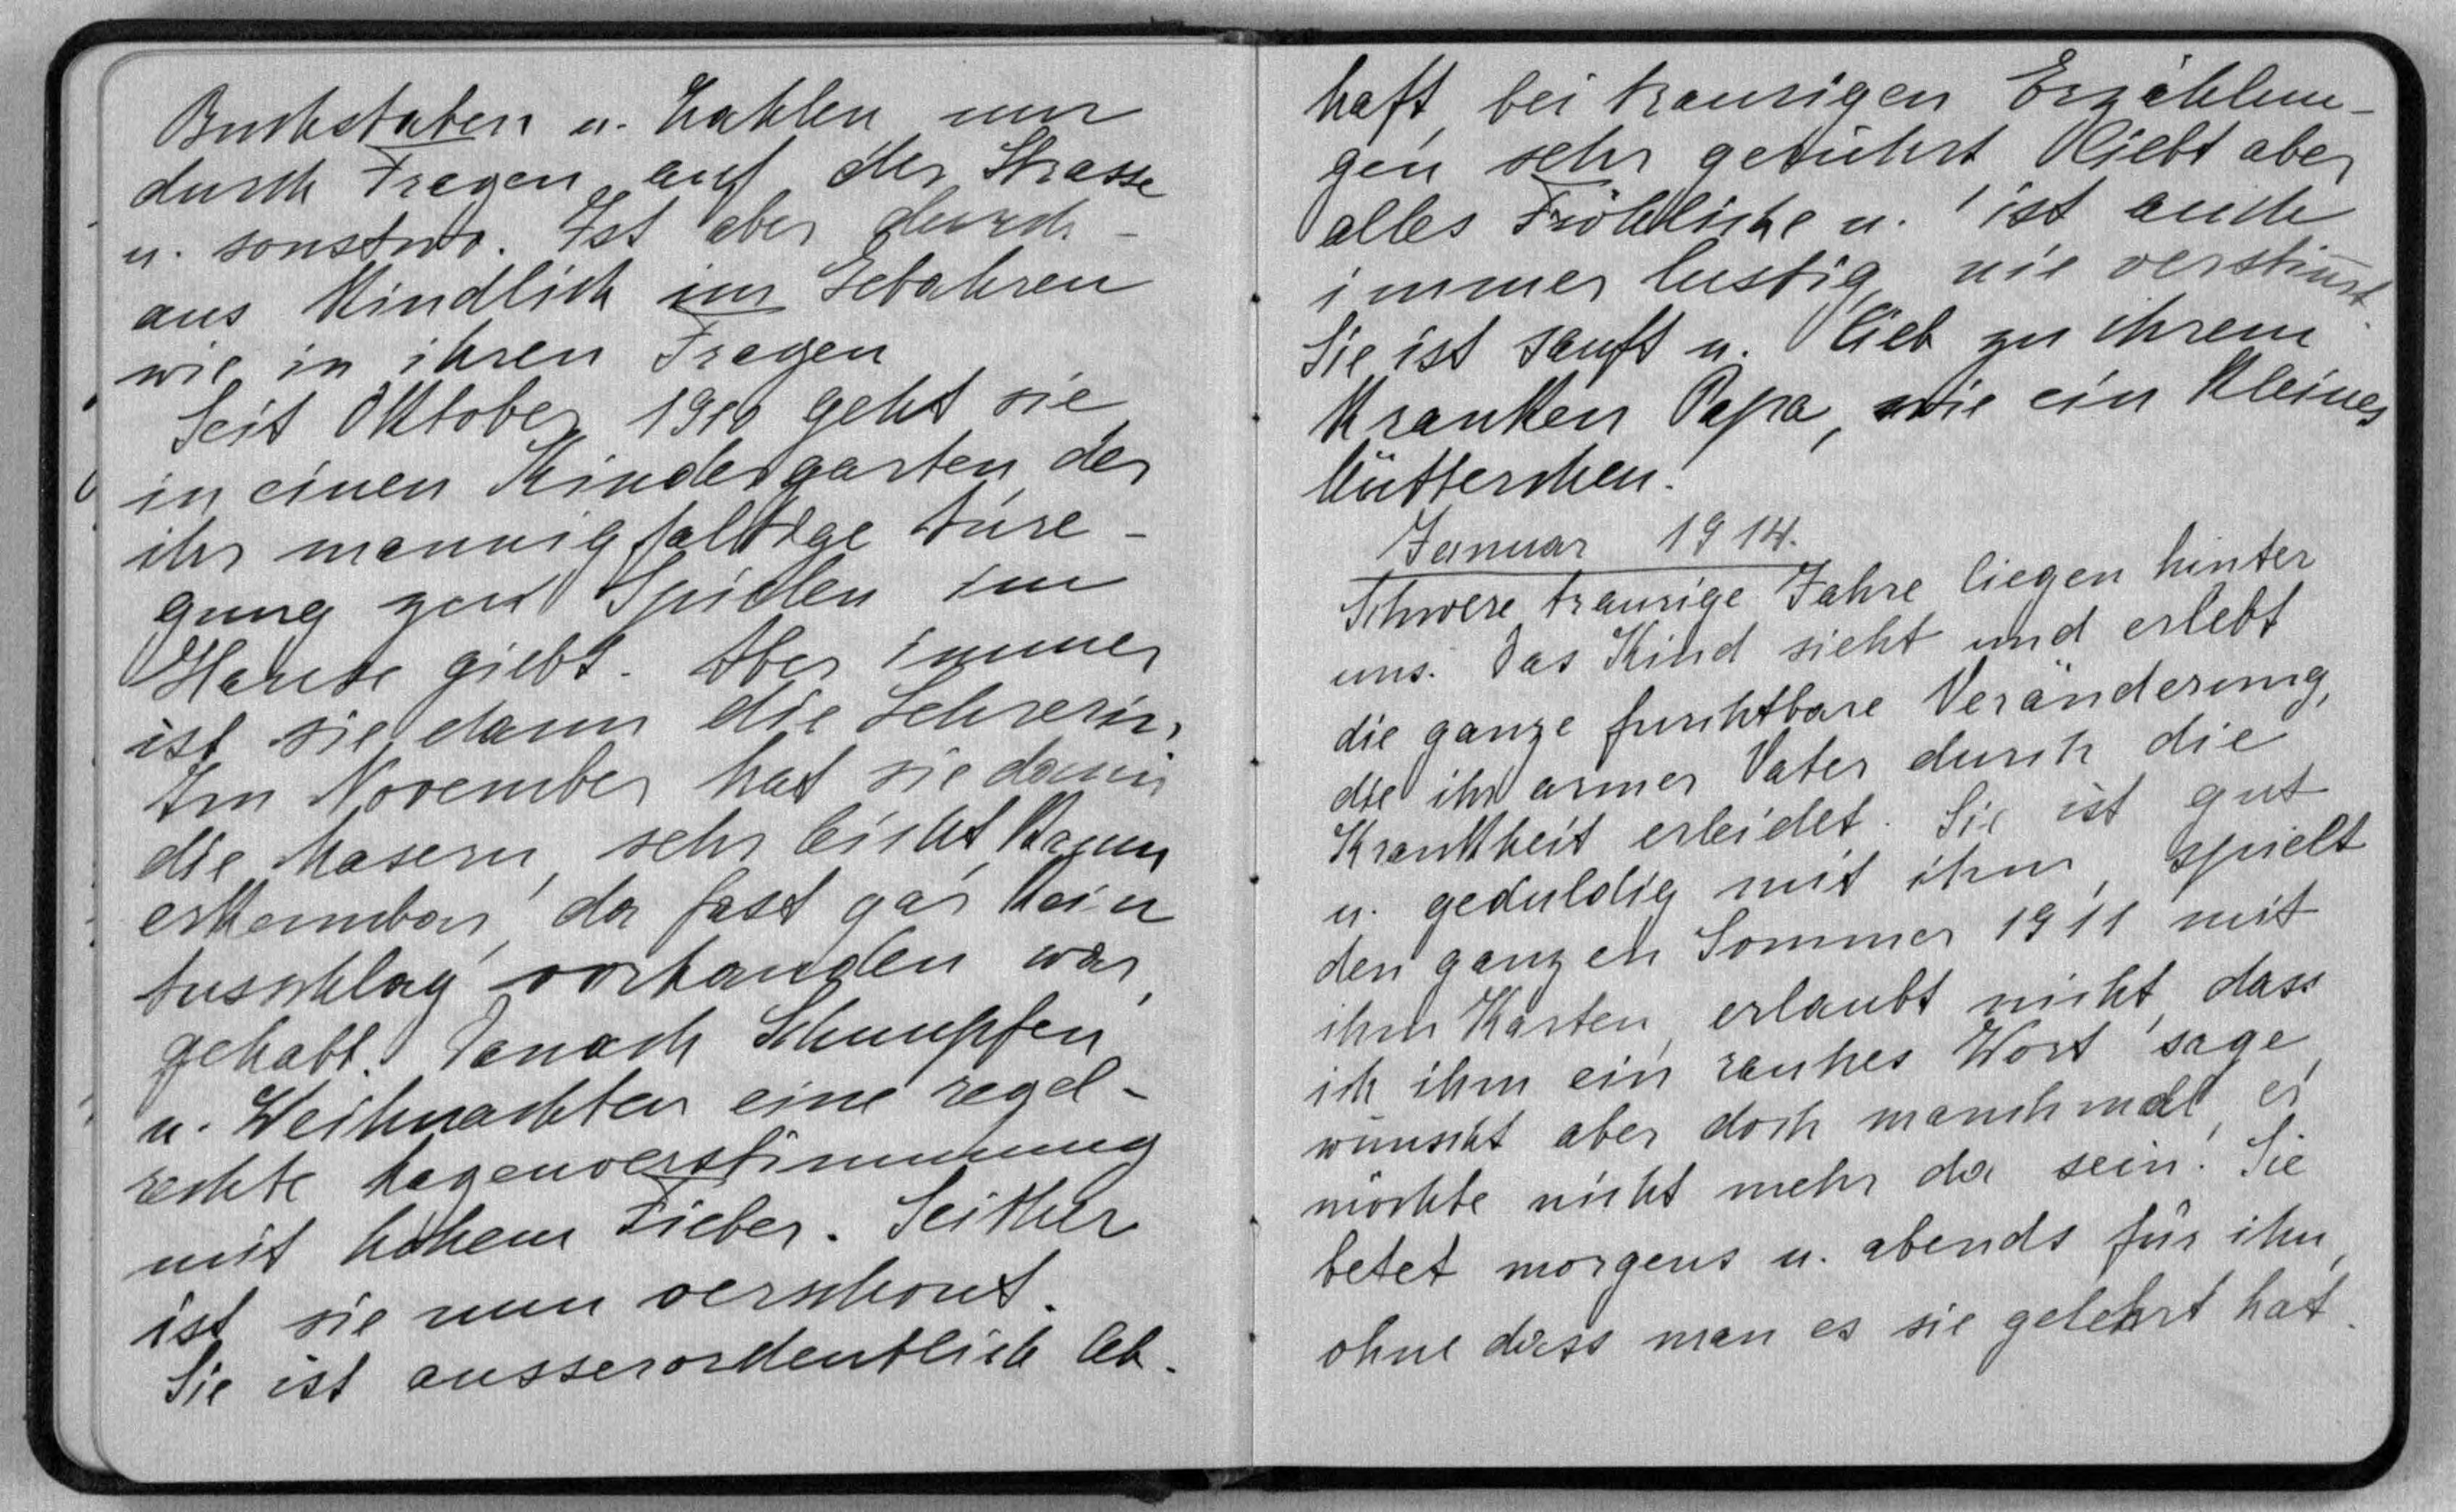 Buchstaben u. Zahlen nur
durch Fragen auf der Strasse
u. sonstwo. Ist aber durch-
aus kindlich im Gebahren
wie in ihren Fragen
Seit Oktober 1910 geht sie
in einen Kindergarten der
ihr mannigfaltige Anre-
gung zum Spielen im
Hause giebt. Aber immer
ist sie dann die Lehrerin.
Im November hat sie dann
die Masern, sehr leicht kaum
erkennbar, da fast gar kein
Ausschlag vorhanden war,
gehabt. Danach Schnupfen
u. Weihnachten eine regel-
rechte Magenverstimmung
mit hohem Fieber. Seither
ist sie nun verschont.
Sie ist ausserordentlich leb-
haft, bei traurigen Erzählun-
gen sehr gerührt liebt aber
alles Fröhliche u. ist auch
immer lustig, nie verstim̅t.
Sie ist sanft u. lieb zu ihrem
kranken Papa, wie ein kleines
Mütterchen.
Januar 1914.
Schwere traurige Jahre liegen hinter
uns. Das Kind sieht und erlebt
die ganze furchtbare Veränderung,
die ihr armer Vater durch die
Krankheit erleidet. Sie ist gut
u. geduldig mit ihm, spielt
den ganzen Sommer 1911 mit
ihm Karten, erlaubt nicht, dass
ich ihm ein rauhes Wort sage,
wünscht aber doch manchmal, er
möchte nicht mehr da sein. Sie
betet morgens u. abends für ihn,
ohne dass man es sie gelehrt hat.